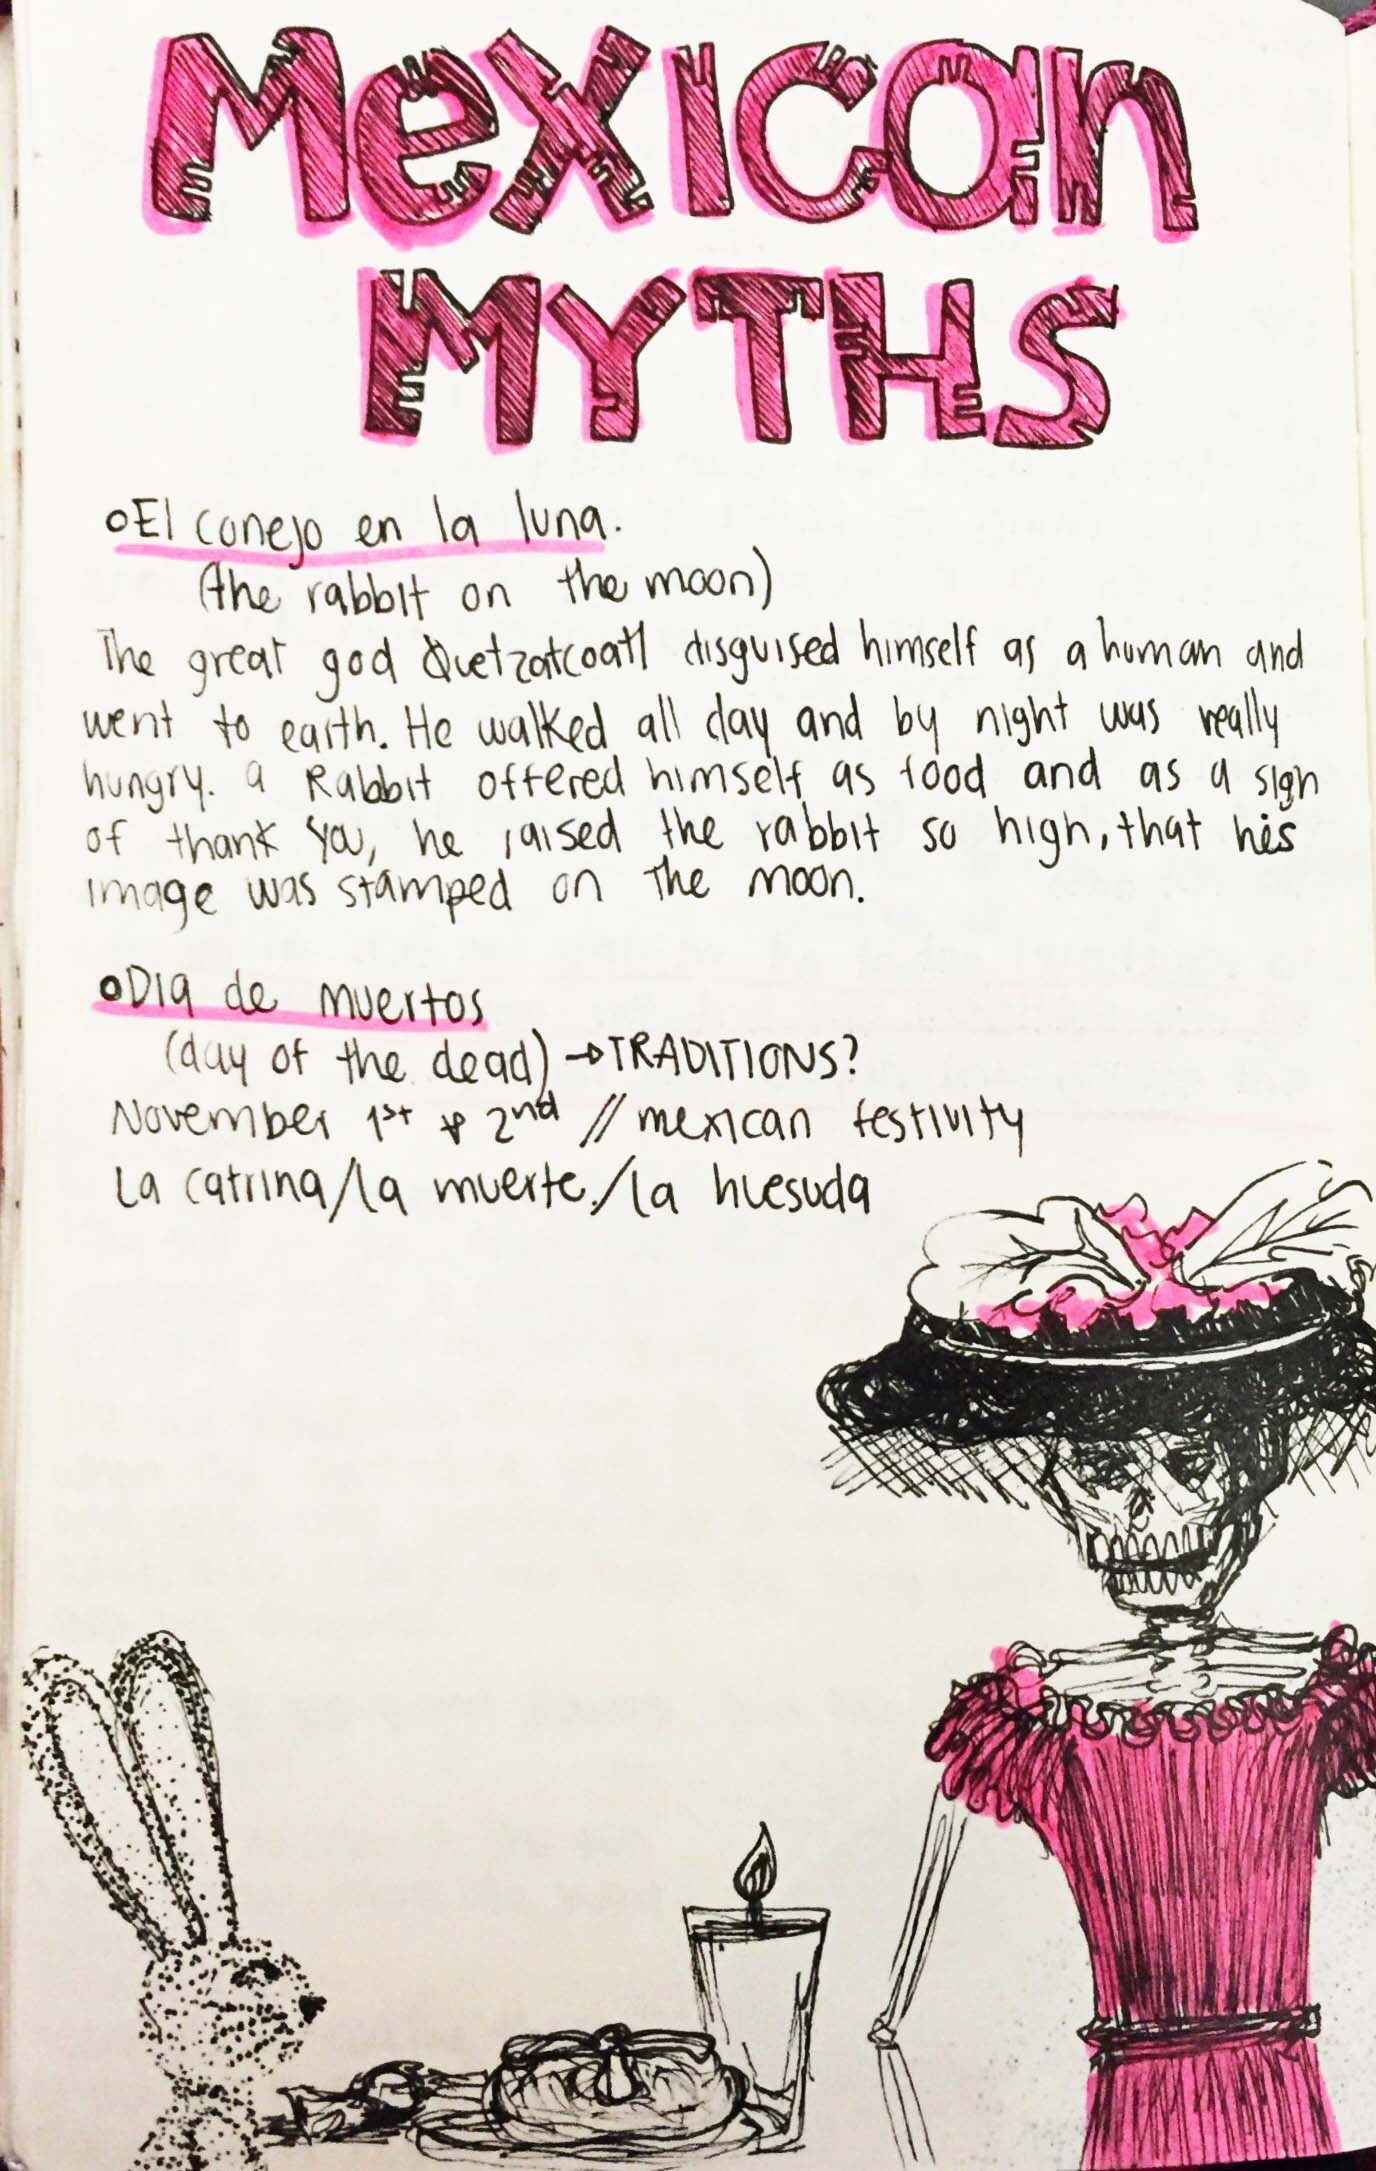 Mexican
MYTHS
El conejo en la luna.
(the rabbit on the moon)
The great god Quetzatcoatl disguised himself as a human and
went to earth. He walked all day and by night was really
hungry. a Rabbit offered himself as food and as a sign
of thank you, he raised the rabbit so high, that his
image was stamped on the moon.
Dia de muertos
(day of the dead) → TRADITIONS?
November 1st & 2nd // mexican festivity
La catrina/la muerte./la huesuda